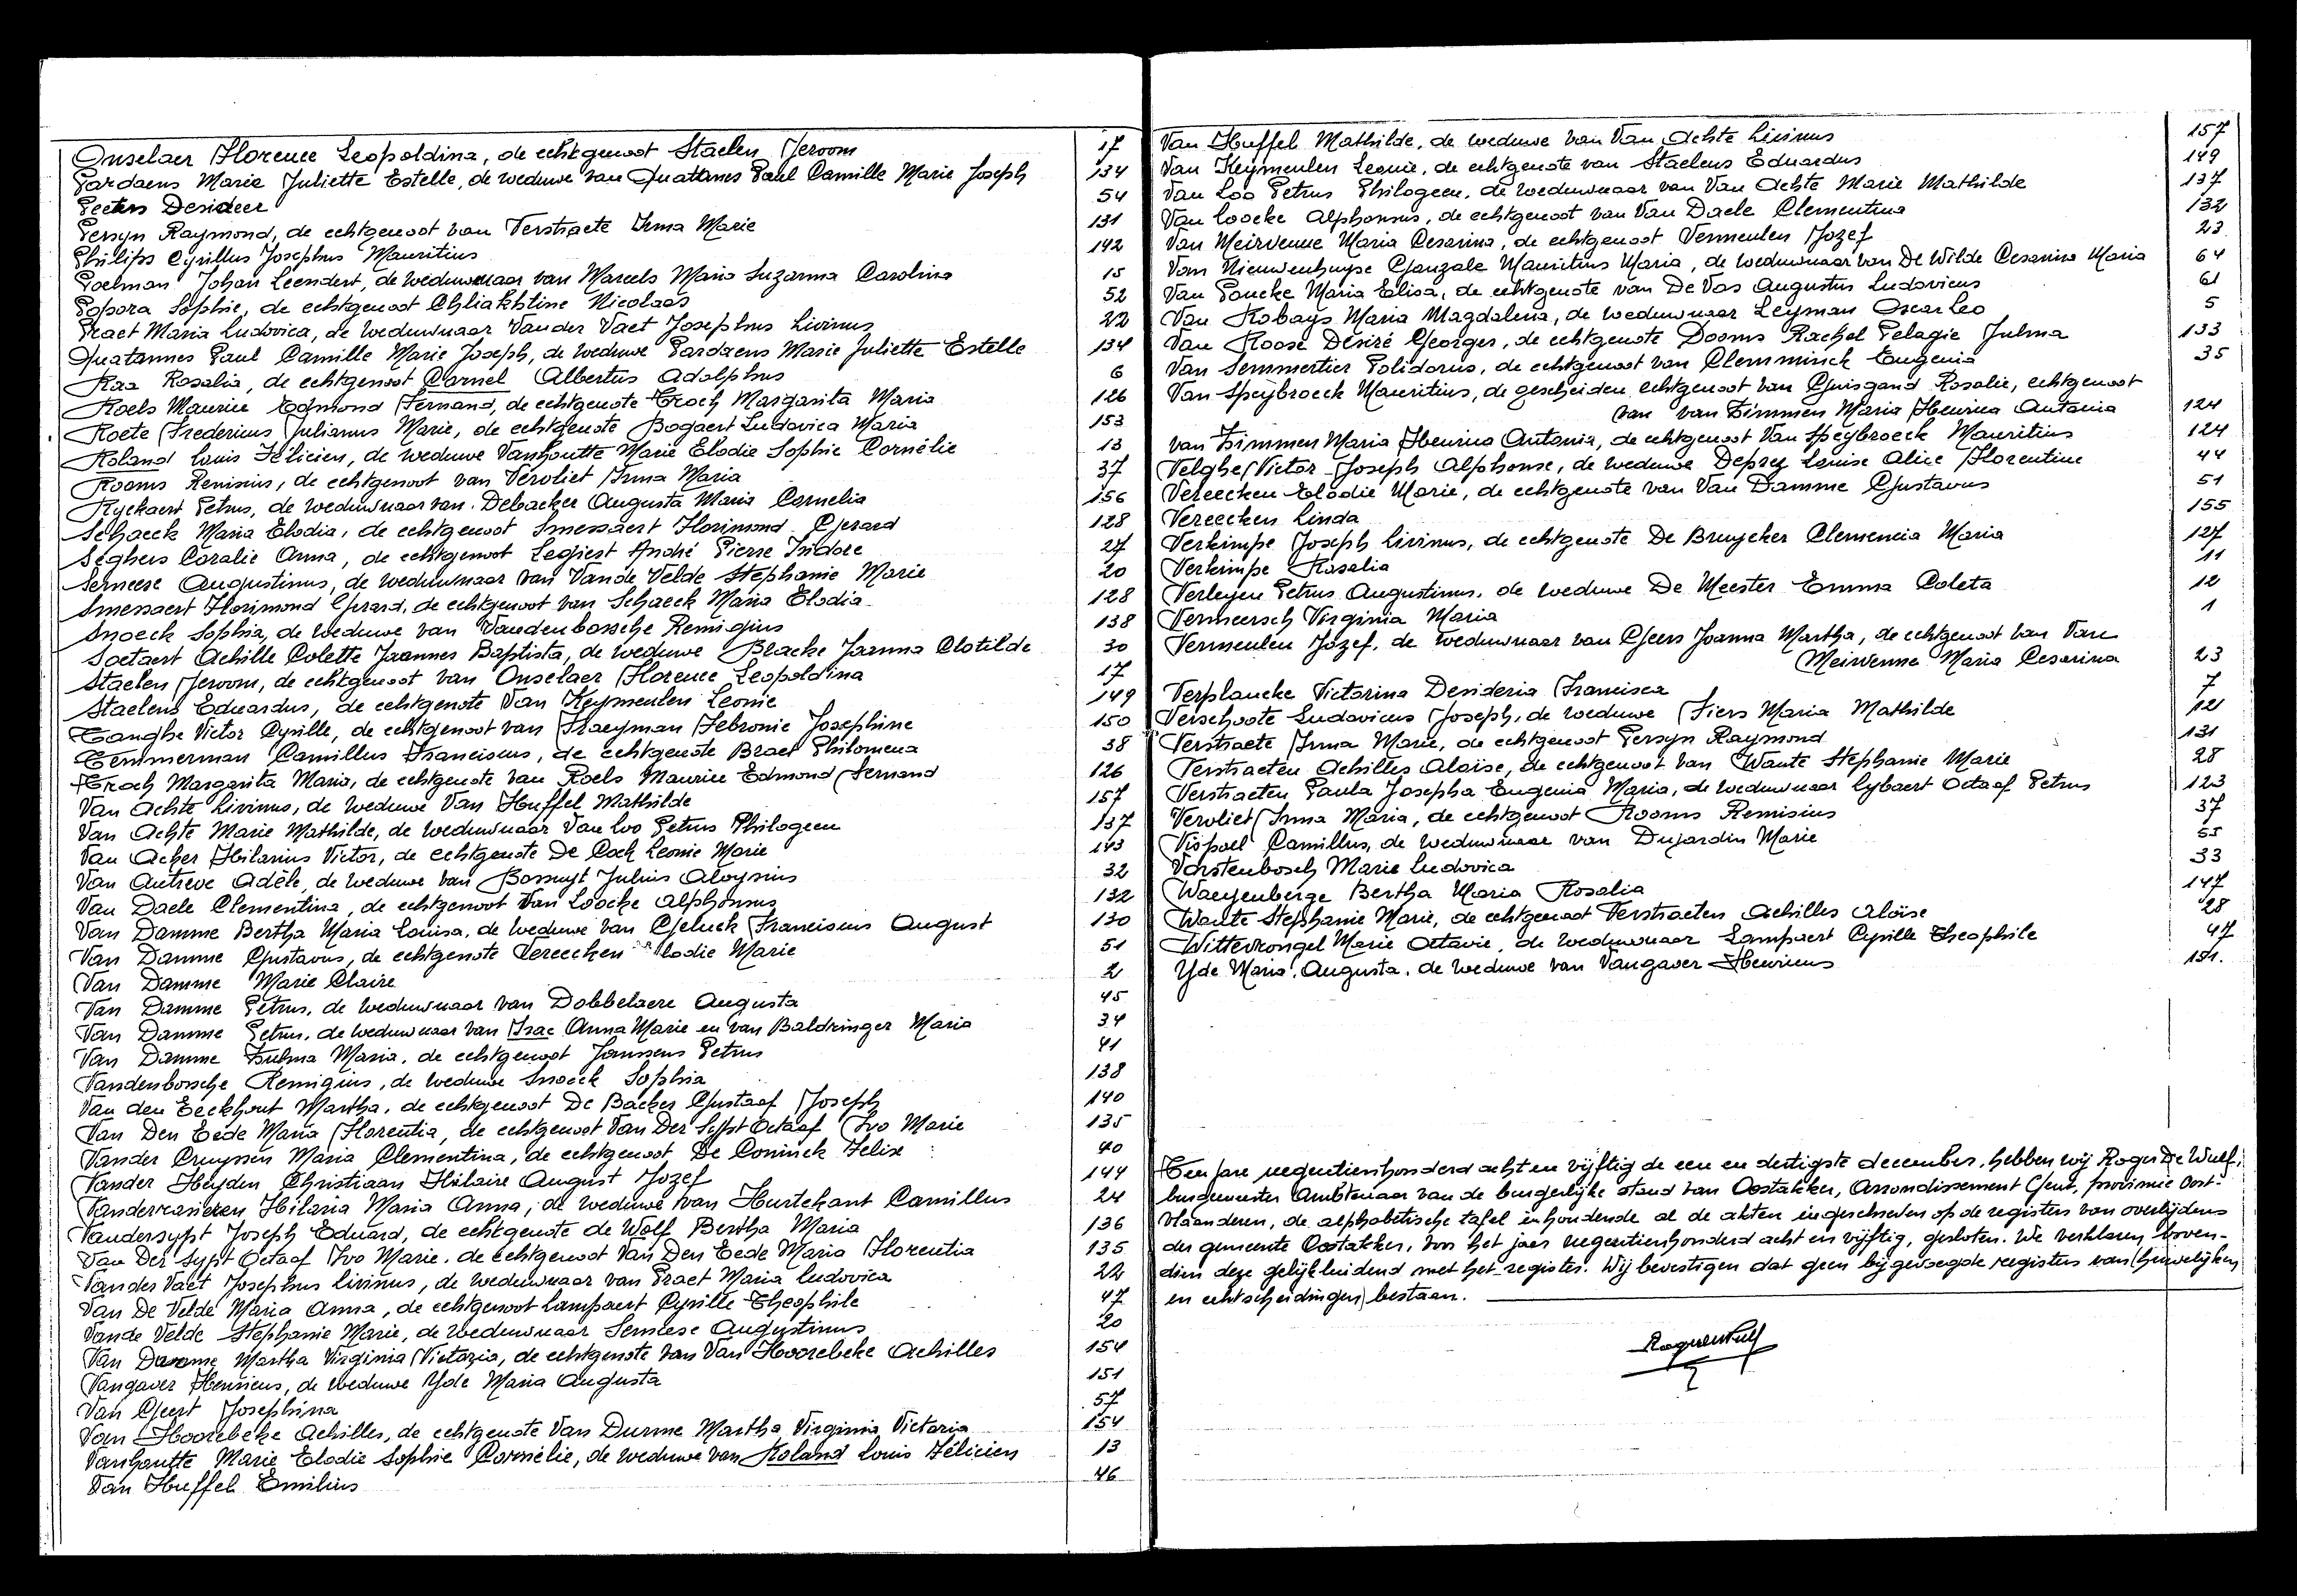 Onselaer Florence Leopoldina, de echtgenoot Staelen Jeroom 17
Pardaens Marie Juliette Estelle, de weduwe van Quatannes Paul Camille Marie Joseph 134
Peeters Desideer 54
Persyn Raymond, de echtgenoot van Verstraete Irma Marie 131
Philips Cyrillus Josephus Mauritius 142
Poelman Johan Leendert, de weduwnaar van Marcels Maria Suzanna Carolina 15
Popora Sophie, de echtgenoot Chliakhtine Nicolaas 52
Praet Maria Ludovica, de weduwnaar Van der Vaet Josephus Livinus 22
Quatannes Paul Camille Marie Joseph, de weduwe Pardaens Marie Juliette Estelle 134
Raa Rosalia, de echtgenoot Carnel Albertus Adolphus 6
Roels Maurice Edmond Fernand, de echtgenote Troch Margarita Maria 126
Roete Fredericus Julianus Marie, de echtgenote Bogaert Ludovica Maria 153
Roland Louis Félicien, de weduwe Vanhoutte Marie Elodie Sophie Cornélie 13
Rooms Remisius, de echtgenoot van Vervliet Irma Maria 37
Ryckaert Petrus, de weduwnaar van Debacker Augusta Maria Cornelia 156
Schaeck Maria Elodia, de echtgenoot Smessaert Florimond Gerard 128
Seghers Coralie Anna, de echtgenoot Legiest André Pierre Isidore 27
Serneese Augustinus, de weduwnaar van Vande Velde Stephanie Marie 20
Smessaert Florimond Gerard, de echtgenoot van Schaeck Maria Elodia 128
Snoeck Sophia, de weduwe van Vandenbossche Remigius 138
Soetaert Achille Colette Joannes Baptista, de weduwe Blacke Joanna Clotilde 30
Staelen Jeroom, de echtgenoot van Onselaer Florence Leopoldina 17
Staelens Eduardus, de echtgenote Van Keymeulen Leonie 149
Tanghe Victor Cyrille, de echtgenoot van Praeyman Febronie Josephine 150
Temmerman Camillus Franciscus, de echtgenote Braet Philomena 38
Troch Margarita Maria, de echtgenote van Roels Maurice Edmond Fernand 126
Van Achte Livinus, de weduwe Van Huffel Mathilde 157
Van Achte Marie Mathilde, de weduwnaar Van Loo Petrus Philogeen 137
Van Acker Hilarius Victor, de echtgenote De Cock Leonie Marie 143
Van Autreve Adèle, de weduwe van Bossuyt Julius Aloysius 32
Van Daele Clementina, de echtgenoot Van Loocke Alphonsus 132
Van Damme Bertha Maria Louisa, de weduwe van Geluck Franciscus August 130
Van Damme Gustavus, de echtgenote Vereecken Elodie Marie 51
Van Damme Marie Claire 2
Van Damme Petrus, de weduwnaar van Dobbelaere Augusta 45
Van Damme Petrus, de weduwnaar van Isac Anna Marie en van Baldringer Maria 34
Van Damme Zulma Maria, de echtgenoot Janssens Petrus 41
Vandenbossche Remigius, de weduwe Snoeck Sophia 138
Van den Eeckhout Martha, de echtgenoot De Backer Gustaaf Joseph 140
Van Den Eede Maria Florentia, de echtgenoot Van Der Sypt Octaaf Ivo Marie 135
Vander Cruyssen Maria Clementina, de echtgenoot De Coninck Felix 40
Vander Heyden Christiaan Hilaire August Jozef 144
Hilaria Maria Anna, de weduwe van Hurtekant Camillus 24
Vandersypt Joseph Eduard, de echtgenote de Wolf Bertha Maria 136
Van Der Sypt Octaaf Ivo Marie, de echtgenoot Van Den Eede Maria Florentia 135
Vander Vaet Josephus Livinus, de weduwnaar van Praet Maria Ludovica 22
Van De Velde Maria Anna, de echtgenoot Lampaert Cyrille Theophile 47
Vande Velde Stephanie Marie, de weduwnaar Serneese Augustinus 20
Van Durme Martha Virginia Victoria, de echtgenote van Van Hoorebeke Achilles 154
Vangaver Henricus, de weduwe Yde Maria Augusta 151
Van Geert Josephina 57
Van Hoorebeke Achilles, de echtgenote Van Durme Martha Virginia Victoria 154
Vanhoutte Marie Elodie Sophie Cornélie, de weduwe van Roland Louis Félicien 13
Van Huffel Emilius 46
Van Huffel Mathilde, de weduwe van Van Achte Livinus 157
Van Keymeulen Leonie, de echtgenote van Staelens Eduardus 149
Van Loo Petrus Philogeen, de weduwnaar van Van Achte Marie Mathilde 137
Van Loocke Alphonsus, de echtgenoot van Van Daele Clementina 132
Van Meirvenne Maria Cesarina, de echtgenoot Vermeulen Jozef 23
Van Nieuwenhuyse Gonzale Mauritius Maria, de weduwnaar van De Wilde Cesarina Maria 64
Van Poucke Maria Elisa, de echtgenote van De Vos Augustus Ludovicus 61
Van Robays Maria Magdalena, de weduwnaar Leyman Oscar Leo 5
Van Roose Desiré Georges, de echtgenote Dooms Rachel Pelagie Julma 133
Van Semmertier Polidorus, de echtgenoot van Clemminck Eugenia 35
Van Speybroeck Mauritius, de gescheiden echtgenoot van Guisgand Rosalie, echtgenoot
van van Zimmen Maria Henrica Antonia 124
van Zimmen Maria Henrica Antonia, de echtgenoot Van Speybroeck Mauritius 124
Velghe Victor Joseph Alphonse, de weduwe Deprez Louise Alice Florentine 44
Vereecken Elodie Marie, de echtgenote van Van Damme Gustavus 51
Vereecken Linda 155
Verkimpe Joseph Livinus, de echtgenote De Bruycker Clemencia Maria 127
Verkimpe Rosalia 11
Verleyen Petrus Augustinus, de weduwe De Meester Emma Coleta 12
Vermeersch Virginia Maria 1
Vermeulen Jozef, de weduwnaar van Geers Joanna Martha, de echtgenoot van Van
Meirvenne Maria Cesarina 23
Verplancke Victorina Desideria Francisca 7
Verschoote Ludovicus Joseph, de weduwe Fiers Maria Mathilde 121
Verstraete Irma Marie, de echtgenoot Persyn Raymond 131
Verstraeten Achilles Aloïse, de echtgenoot van Wante Stephanie Marie 28
Verstraeten Paula Josepha Eugenia Maria, de weduwnaar Lybaert Octaaf Petrus 123
Vervliet Irma Maria, de echtgenoot Rooms Remisius 37
Vispoel Camillus, de weduwnaar van Dujardin Marie 55
Vorstenbosch Marie Ludovica 33
Waeyenberge Bertha Maria Rosalia 147
Wante Stephanie Marie, de echtgenoot Verstraeten Achilles Aloïse 28
Wittevrongel Marie Octavie, de weduwnaar Lampaert Cyrille Theophile 47
Yde Maria Augusta, de weduwe van Vangaver Henricus 151.
Ten jare negentienhonderd acht en vijftig de een en dertigste december, hebben wij Roger De Wulf,
burgemeester Ambtenaar van de burgerlijke stand van Oostakker, Arrondissement Gent, provincie Oost-
vlaanderen, de alphabetische tafel inhoudende al de akten ingeschreven op de registers van overlijdens
der gemeente Oostakker, voor het jaar negentienhonderd acht en vijftig, gesloten. We verklaren boven-
dien deze gelijkluidend met het register. Wij bevestigen dat geen bijgevoegde registers van (huwelijken
en echtscheidingen) bestaan.